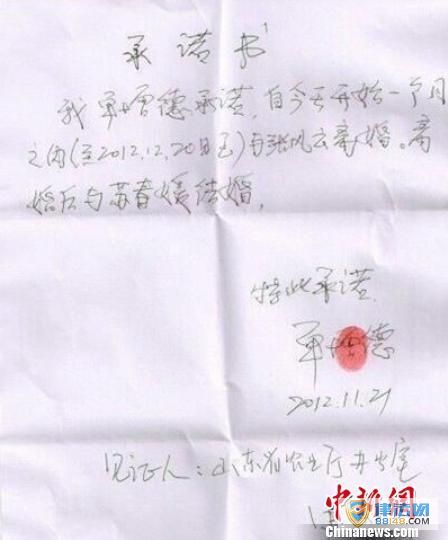 承诺书
我单增德承诺，自今天开始一个月
之内（至2012.12.20日至）与张风云离婚。离
婚后与苏春媛结婚，
特此承诺．
单增德
2012.11.21
见证人：山东省农业厅办公室
中新网
津法网
88148.com
Chinanews.com